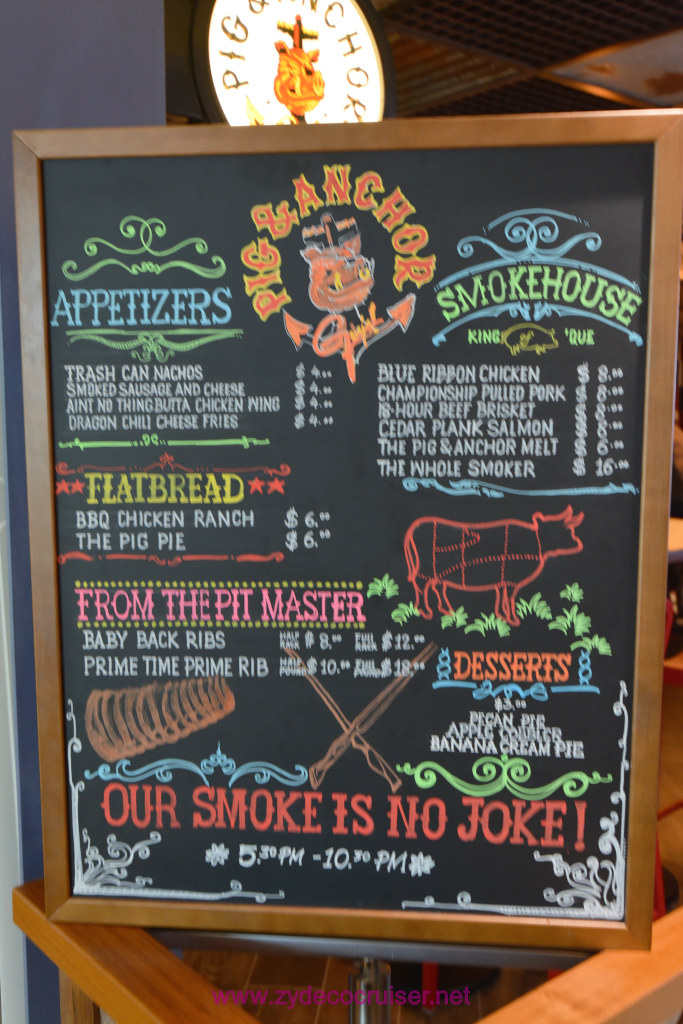 PIG & ANCHOR
PIG & ANCHOR
APPETIZERS
TRASH CAN NACHOS $4.00
SMOKED SAUSAGE AND CHEESE $4.00
AINT NO THING BUTTA CHICKEN WING $4.00
DRAGON CHILI CHEESE FRIES $4.00
SMOKEHOUSE
KING 'QUE
BLUE RIBBON CHICKEN $8.00
CHAMPIONSHIP PULLED PORK $8.00
18-HOUR BEEF BRISKET $8.00
CEDAR PLANK SALMON $8.00
THE PIG & ANCHOR MELT $6.00
THE WHOLE SMOKER $16.00
FLATBREAD
BBQ CHICKEN RANCH $6.00
THE PIG PIE $6.00
FROM THE PIT MASTER
BABY BACK RIBS HALF RACK $8.00 FULL RACK $12.00
PRIME TIME PRIME RIB HALF POUND $10.00 FULL POUND $18.00
DESSERTS
$3.00
PECAN PIE
APPLE COBBLER
BANANA CREAM PIE
OUR SMOKE IS NO JOKE!
5.30 PM - 10.30 PM
www.zydecocruiser.net